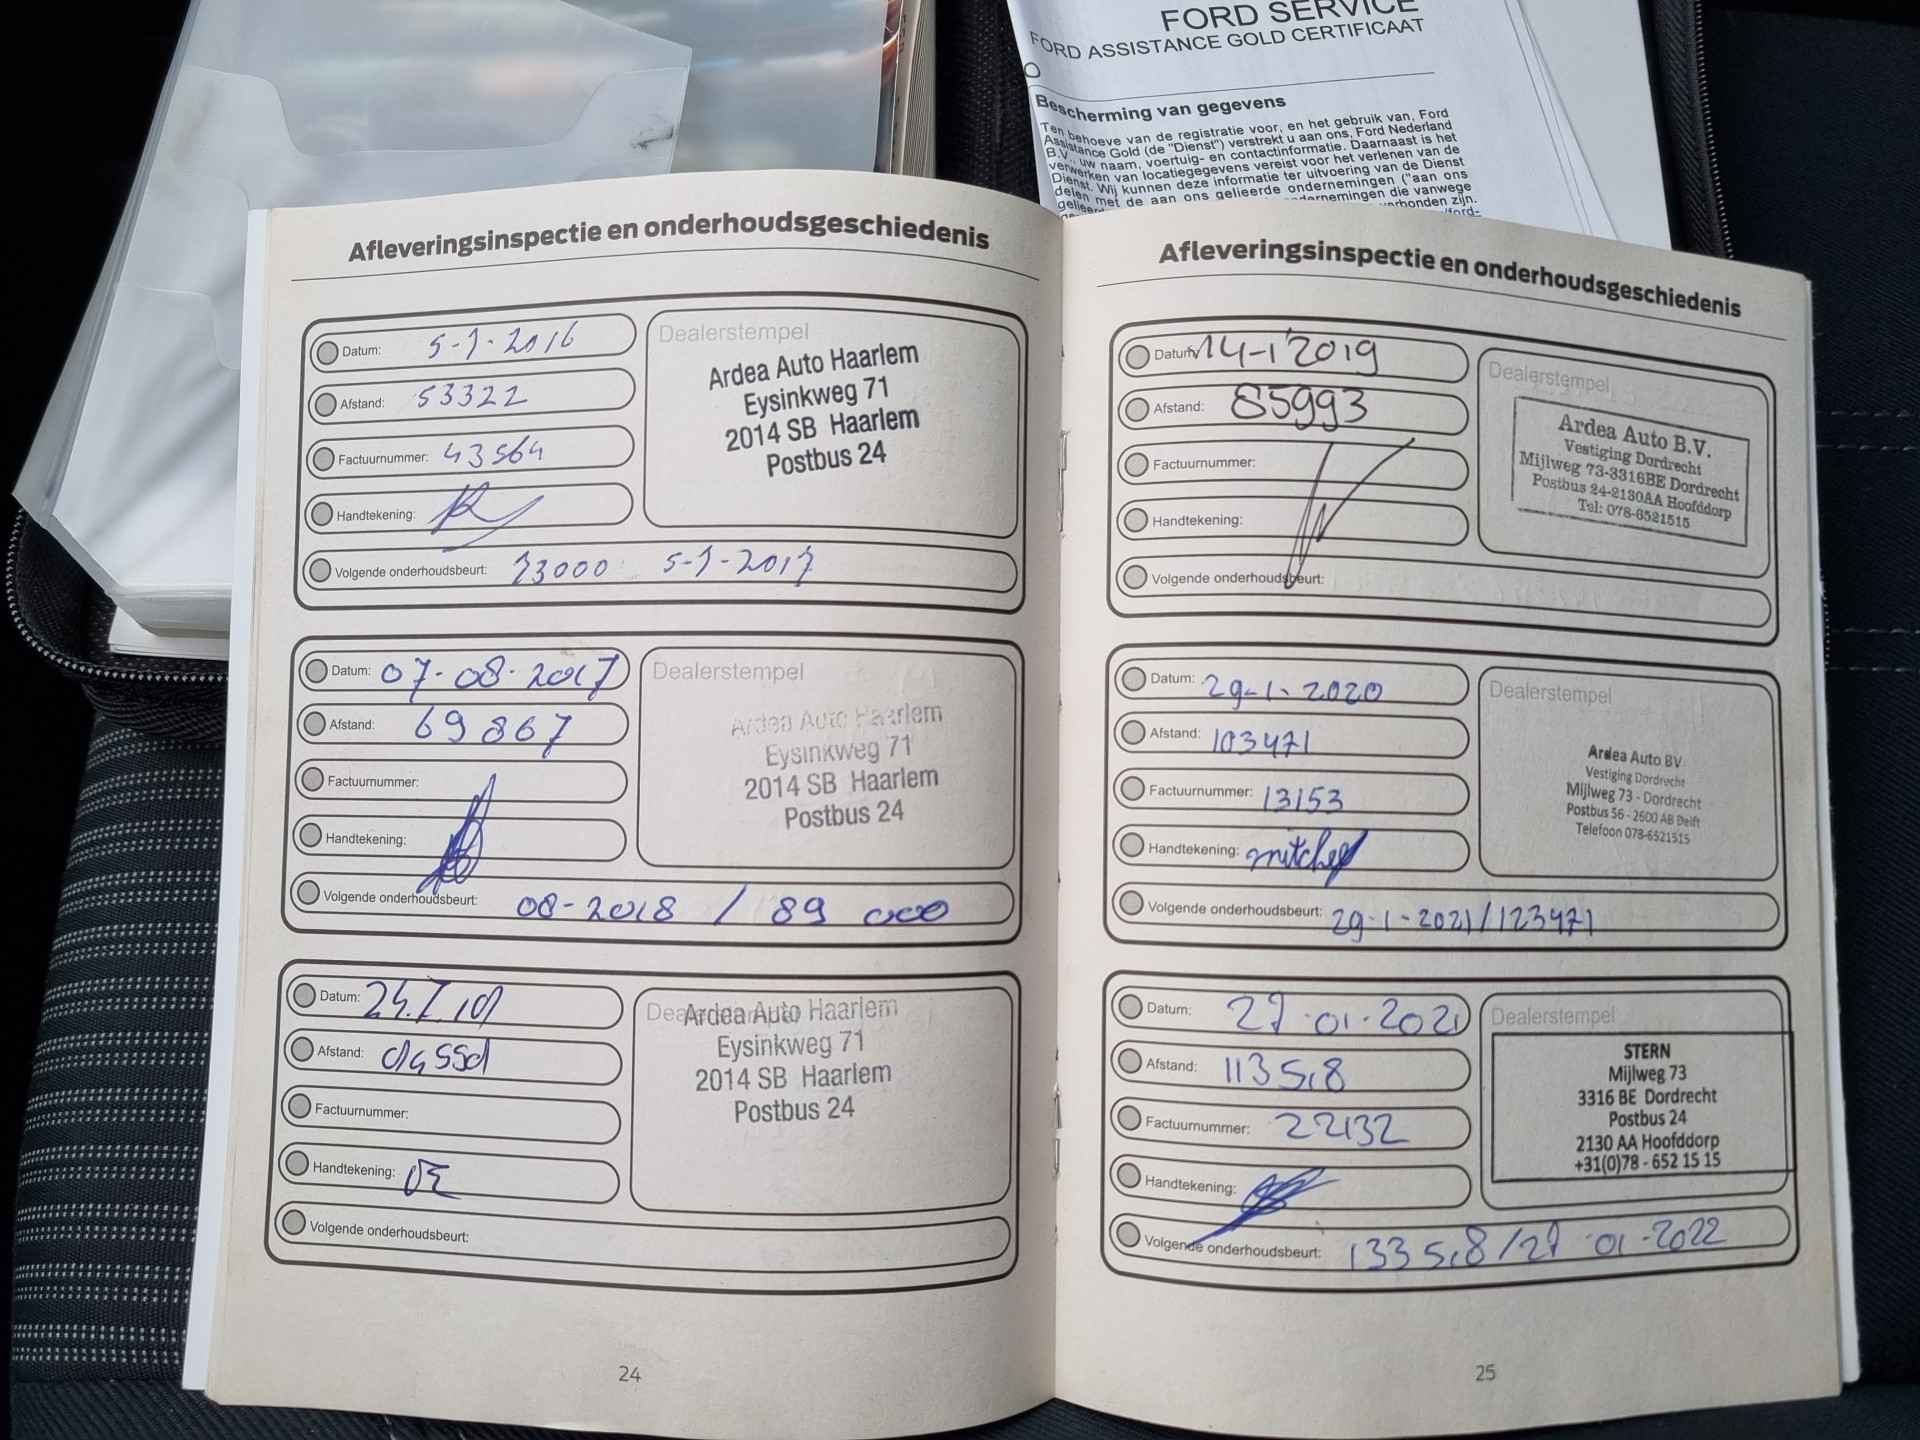 FORD SERVICE
FORD ASSISTANCE GOLD CERTIFICAAT
Bescherming van gegevens
Ten behoeve van de registratie voor, en het gebruik van, Ford
Assistance Gold (de "Dienst") verstrekt u aan ons, Ford Nederland
B.V., uw naam, voertuig- en contactinformatie. Daarnaast is het
verwerken van locatiegegevens vereist voor het verlenen van de
Dienst. Wij kunnen deze informatie ter uitvoering van de Dienst
delen met de aan ons gelieerde ondernemingen ("aan ons
ondernemingen die vanwege
verbonden zijn.
Afleveringsinspectie en onderhoudsgeschiedenis
Datum: 5-7-2016
Afstand: 53322
Factuurnummer: 43564
Handtekening:
Volgende onderhoudsbeurt: 73000 5-7-2017
Dealerstempel
Ardea Auto Haarlem
Eysinkweg 71
2014 SB Haarlem
Postbus 24
Datum: 07-08-2017
Afstand: 69867
Factuurnummer:
Handtekening:
Volgende onderhoudsbeurt: 08-2018 / 89 000
Dealerstempel
Ardea Auto Haarlem
Eysinkweg 71
2014 SB Haarlem
Postbus 24
Datum:
Afstand:
Factuurnummer:
Handtekening:
Volgende onderhoudsbeurt:
Dealerstempel
Ardea Auto Haarlem
Eysinkweg 71
2014 SB Haarlem
Postbus 24
24
Afleveringsinspectie en onderhoudsgeschiedenis
Datum: 14-1-2019
Afstand: 85993
Factuurnummer:
Handtekening:
Volgende onderhoudsbeurt:
Dealerstempel
Ardea Auto B.V.
Vestiging Dordrecht
Mijlweg 73-3316BE Dordrecht
Postbus 24-2130AA Hoofddorp
Tel: 078-6521515
Datum: 29-1-2020
Afstand: 103471
Factuurnummer: 13153
Handtekening: mitchel
Volgende onderhoudsbeurt: 29-1-2021/123471
Dealerstempel
Ardea Auto BV
Vestiging Dordrecht
Mijlweg 73 - Dordrecht
Postbus 56 - 2600 AB Delft
Telefoon 078-6521515
Datum: 27-01-2021
Afstand: 113518
Factuurnummer: 22132
Handtekening:
Volgende onderhoudsbeurt: 133518/27-01-2022
Dealerstempel
STERN
Mijlweg 73
3316 BE Dordrecht
Postbus 24
2130 AA Hoofddorp
+31(0)78 - 652 15 15
25